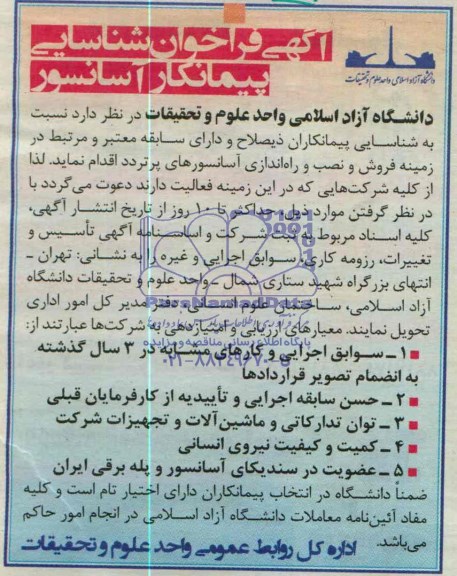 آگهی فراخوان شناسایی
پیمانکار آسانسور
دانشگاه آزاد اسلامی واحد علوم و تحقیقات
دانشگاه آزاد اسلامی واحد علوم و تحقیقات در نظر دارد نسبت
به شناسایی پیمانکاران ذیصلاح و دارای سابقه معتبر و مرتبط در
زمینه فروش و نصب و راه‌اندازی آسانسورهای پرتردد اقدام نماید. لذا
از کلیه شرکت‌هایی که در این زمینه فعالیت دارند دعوت می‌گردد با
در نظر گرفتن موارد ذیل حداکثر تا ۱۰ روز از تاریخ انتشار آگهی،
کلیه اسناد مربوط به ثبت شرکت و اساسنامه آگهی تأسیس و
تغییرات، رزومه کاری، سوابق اجرایی و غیره را به نشانی: تهران ـ
انتهای بزرگراه شهید ستاری شمال ـ واحد علوم و تحقیقات دانشگاه
آزاد اسلامی، ساختمان علوم انسانی، دفتر مدیر کل امور اداری
تحویل نمایند. معیارهای ارزیابی و امتیازدهی به شرکت‌ها عبارتند از:
۱ ـ سوابق اجرایی و کارهای مشابه در ۳ سال گذشته
به انضمام تصویر قراردادها
۲ ـ حسن سابقه اجرایی و تأییدیه از کارفرمایان قبلی
۳ ـ توان تدارکاتی و ماشین‌آلات و تجهیزات شرکت
۴ ـ کمیت و کیفیت نیروی انسانی
۵ ـ عضویت در سندیکای آسانسور و پله برقی ایران
ضمناً دانشگاه در انتخاب پیمانکاران دارای اختیار تام است و کلیه
مفاد آئین‌نامه معاملات دانشگاه آزاد اسلامی در انجام امور حاکم
می‌باشد.
اداره کل روابط عمومی واحد علوم و تحقیقات
پایگاه اطلاع رسانی مناقصه و مزایده